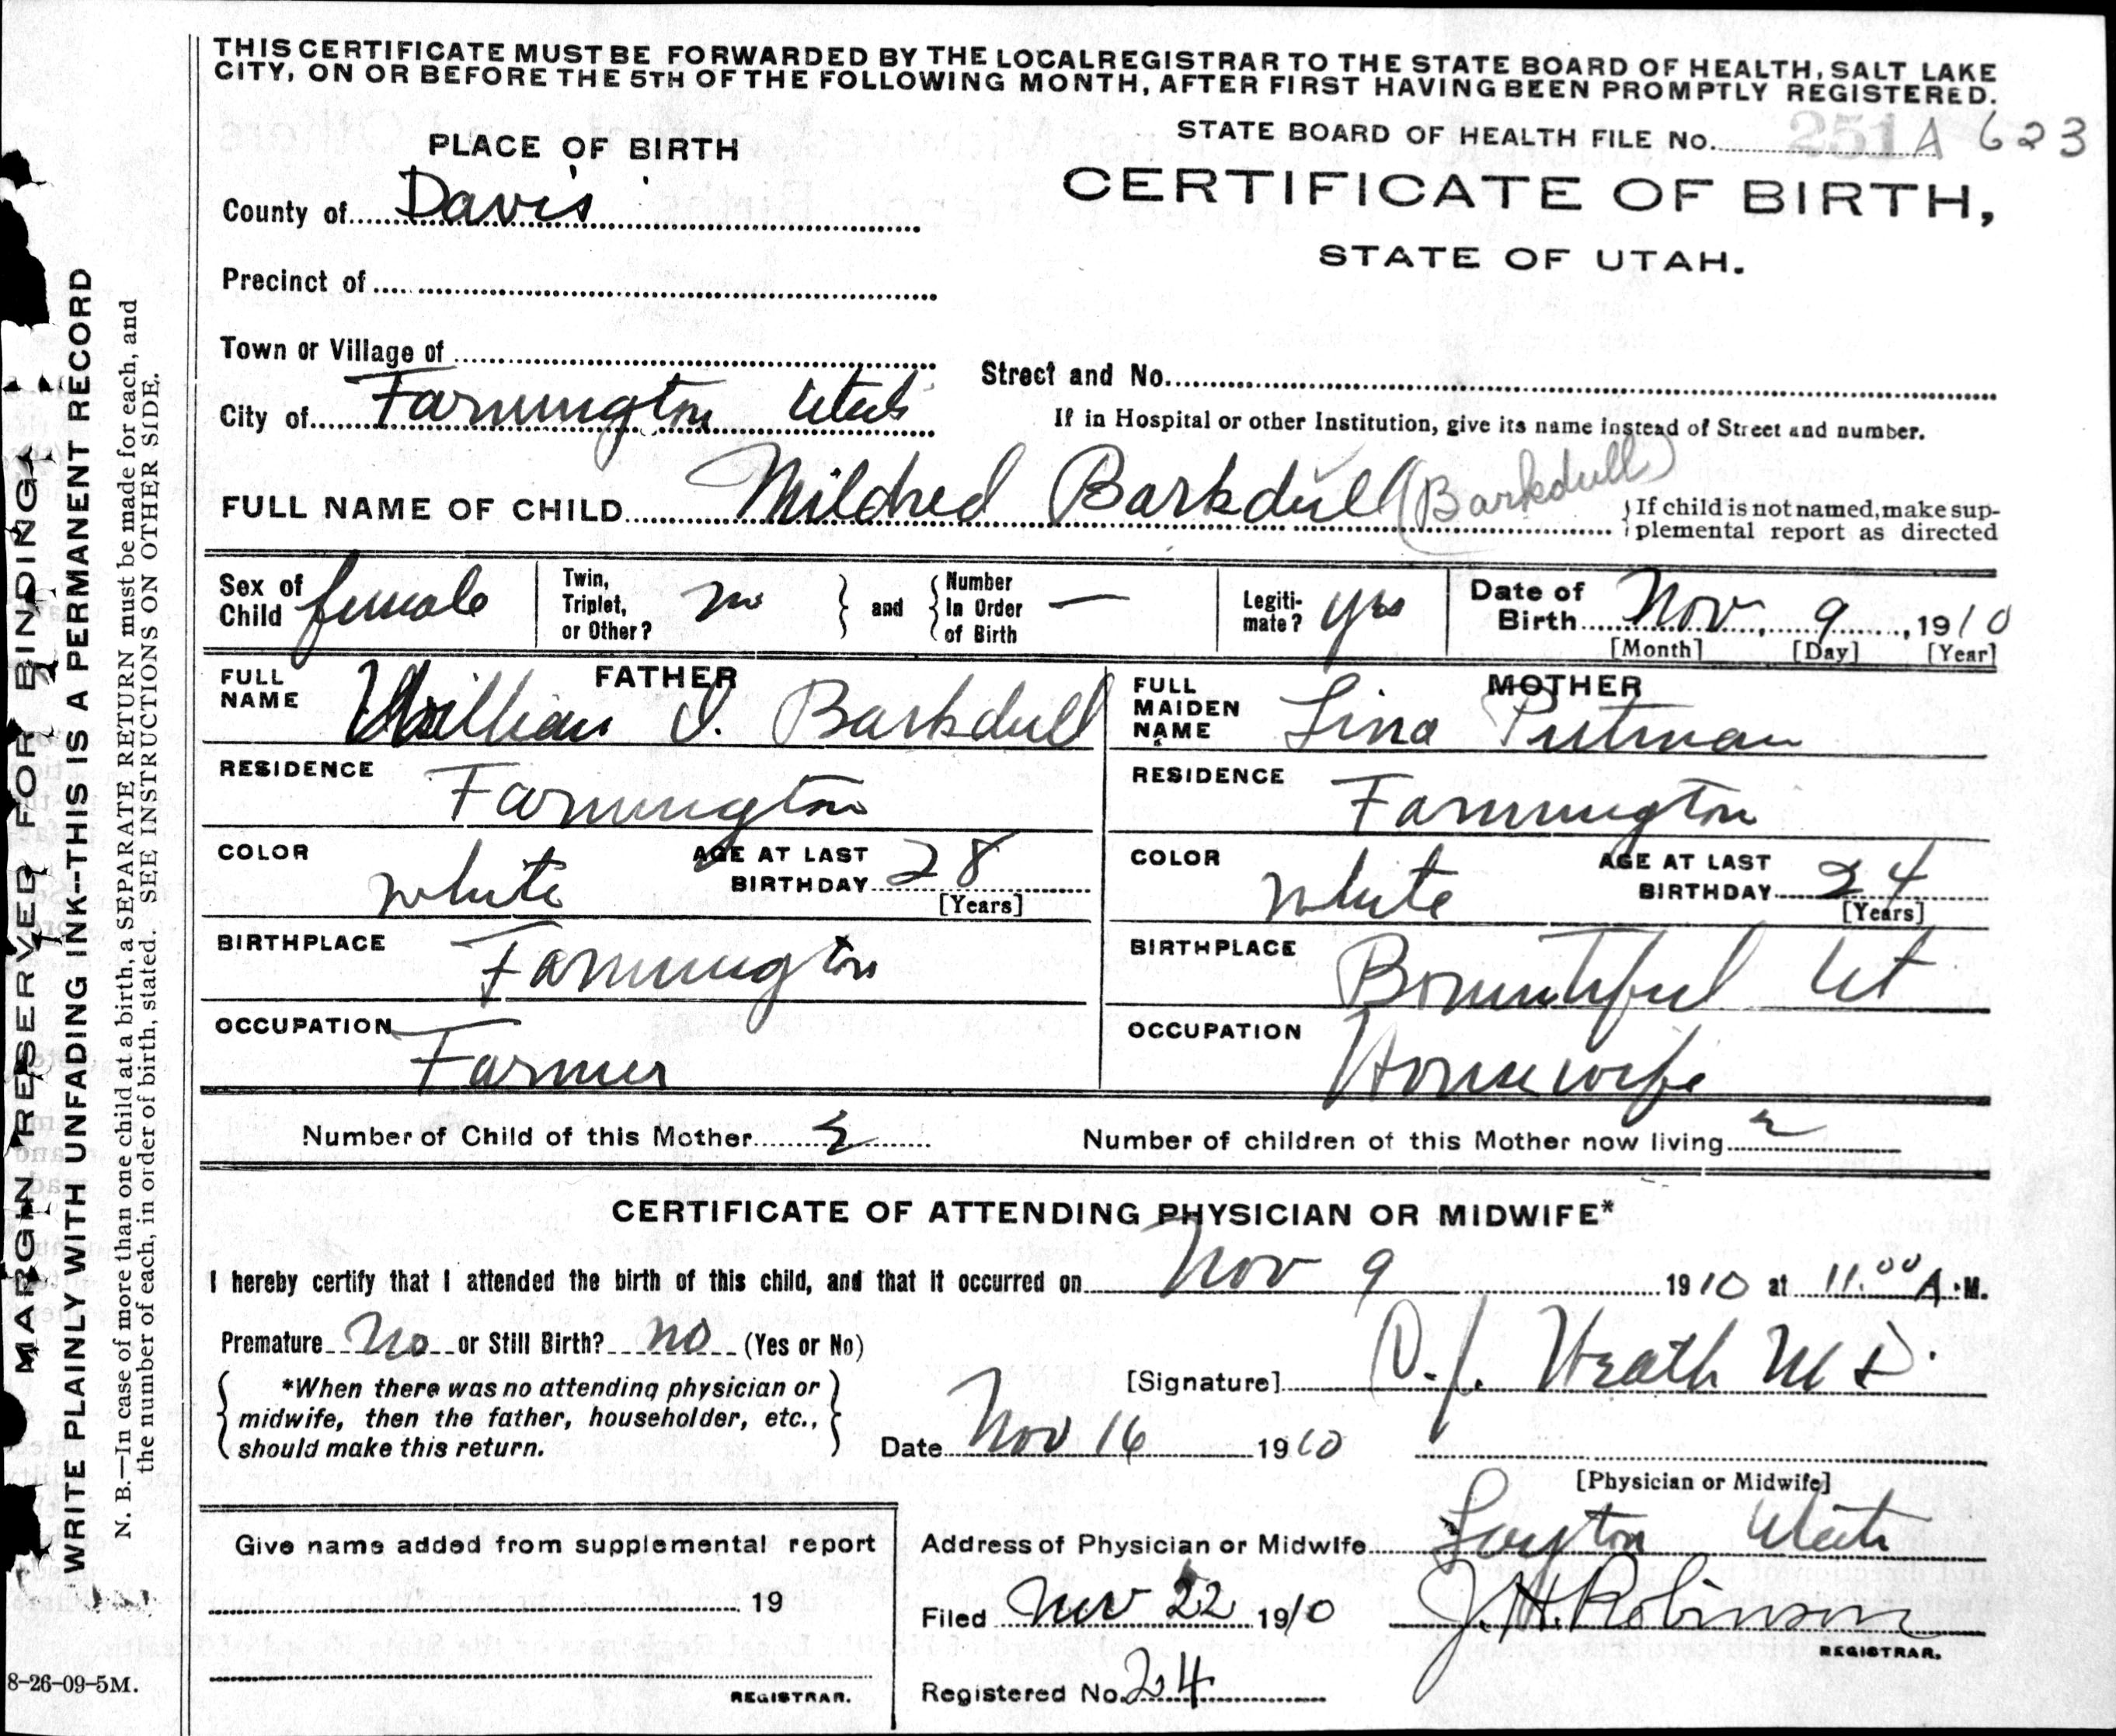 THIS CERTIFICATE MUST BE FORWARDED BY THE LOCAL REGISTRAR TO THE STATE BOARD OF HEALTH, SALT LAKE
CITY, ON OR BEFORE THE 5TH OF THE FOLLOWING MONTH, AFTER FIRST HAVING BEEN PROMPTLY REGISTERED.
STATE BOARD OF HEALTH FILE No. 251 A 623
PLACE OF BIRTH
CERTIFICATE OF BIRTH,
STATE OF UTAH.
County of Davis
Precinct of
Town or Village of
Street and No.
City of Farmington Utah
If in Hospital or other Institution, give its name instead of Street and number.
FULL NAME OF CHILD Mildred Barkdull (Barkdull)
If child is not named, make sup-
plemental report as directed
Sex of Child female
Twin, Triplet, or Other? no and Number In Order of Birth —
Legiti-mate? yes
Date of Birth Nov 9, 1910
[Month] [Day] [Year]
FATHER
FULL NAME William I. Barkdull
RESIDENCE Farmington
COLOR white AGE AT LAST BIRTHDAY 28
[Years]
BIRTHPLACE Farmington
OCCUPATION Farmer
MOTHER
FULL MAIDEN NAME Lina Putman
RESIDENCE Farmington
COLOR white AGE AT LAST BIRTHDAY 24
[Years]
BIRTHPLACE Bountiful Ut
OCCUPATION Housewife
Number of Child of this Mother 2 Number of children of this Mother now living 2
CERTIFICATE OF ATTENDING PHYSICIAN OR MIDWIFE*
I hereby certify that I attended the birth of this child, and that it occurred on Nov 9 1910 at 11.00 A.M.
Premature No or Still Birth? no (Yes or No)
*When there was no attending physician or
midwife, then the father, householder, etc.,
should make this return.
[Signature] Heath M D.
Date Nov 16 1910
[Physician or Midwife]
Give name added from supplemental report
19
REGISTRAR.
Address of Physician or Midwife Layton Utah
Filed Nov 22 1910 J. H. Robinson
REGISTRAR.
Registered No. 24
8-26-09-5M.
MARGIN RESERVED FOR BINDING.
WRITE PLAINLY WITH UNFADING INK--THIS IS A PERMANENT RECORD
N. B.—In case of more than one child at a birth, a SEPARATE RETURN must be made for each, and
the number of each, in order of birth, stated. SEE INSTRUCTIONS ON OTHER SIDE.